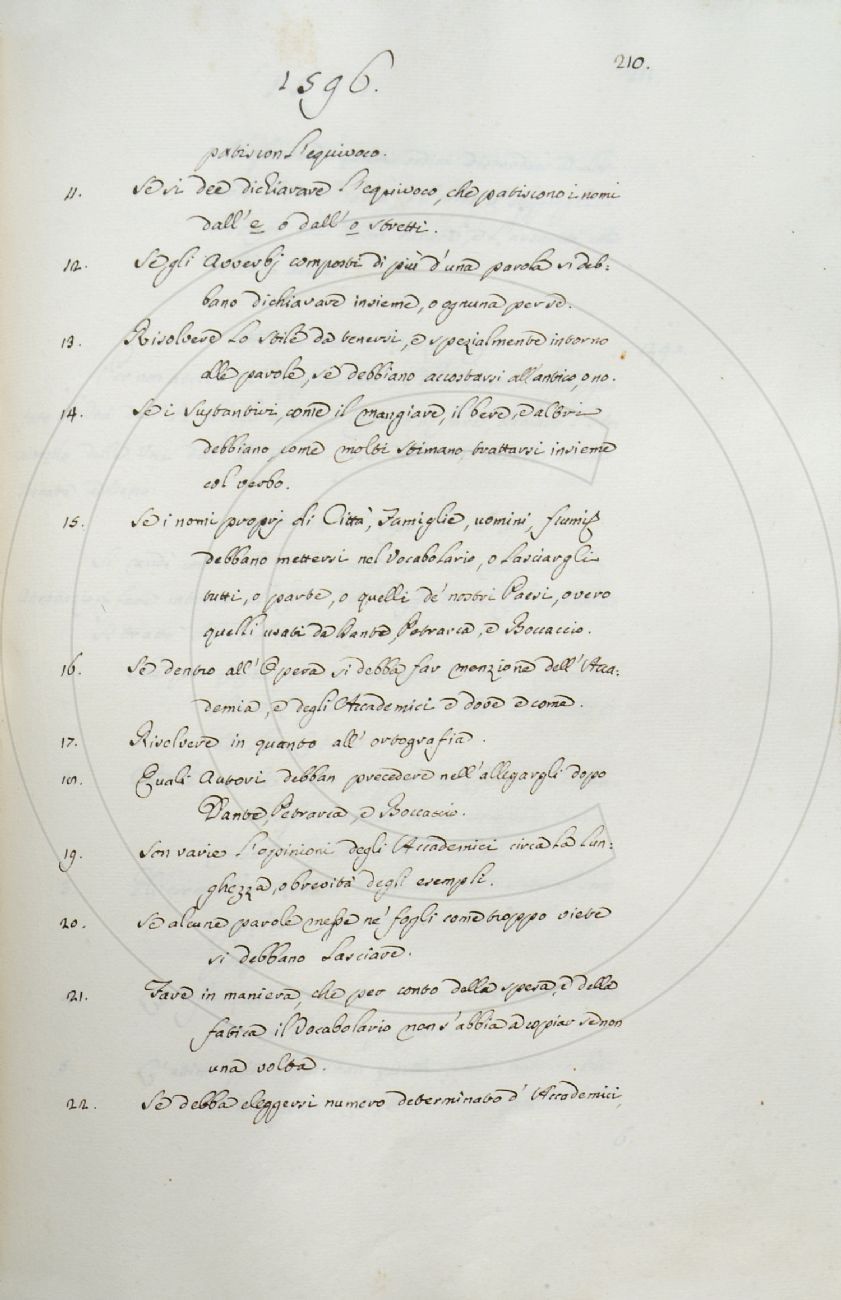 210.
1596.
patiscon l'equivoco.
11. Se si dee dichiarare l'equivoco, che patiscono i nomi
dall'e, o dall'o stretti.
12. Se gli Avverbj composti di più d'una parola si deb:
bano dichiarare insieme, o ognuna per se.
13. Risolvere lo stile da tenersi, e spezialmente intorno
alle parole, se debbiano accostarsi all'antico, o no.
14. Se i Sustantivi, come il mangiare, il bere, e altri
debbiano, come molti stimano, trattarsi insieme
col verbo.
15. Se i nomi proprj di Città, Famiglie, uomini, fiumi &
debbano mettersi nel Vocabolario, o lasciargli
tutti, o parte, o quelli de' nostri Paesi, overo
quelli usati da Dante, Petrarca, e Boccaccio.
16. Se dentro all'Opera si debba far menzione dell'Acca:
demia, e degli Accademici e dove e come.
17. Risolvere in quanto all'ortografia.
18. Quali Autori debban precedere nell'allegargli dopo
Dante, Petrarca, e Boccaccio.
19. Son varie l'opinioni degli Accademici circa la lun:
ghezza, o brevità degli esempli.
20. Se alcune parole messe ne' fogli come troppo viete
si debbano lasciare.
21. Fare in maniera, che per conto della spesa, e della
fatica il Vocabolario non s'abbia a copiar se non
una volta.
22. Se debba eleggersi numero determinato d'Accademici,